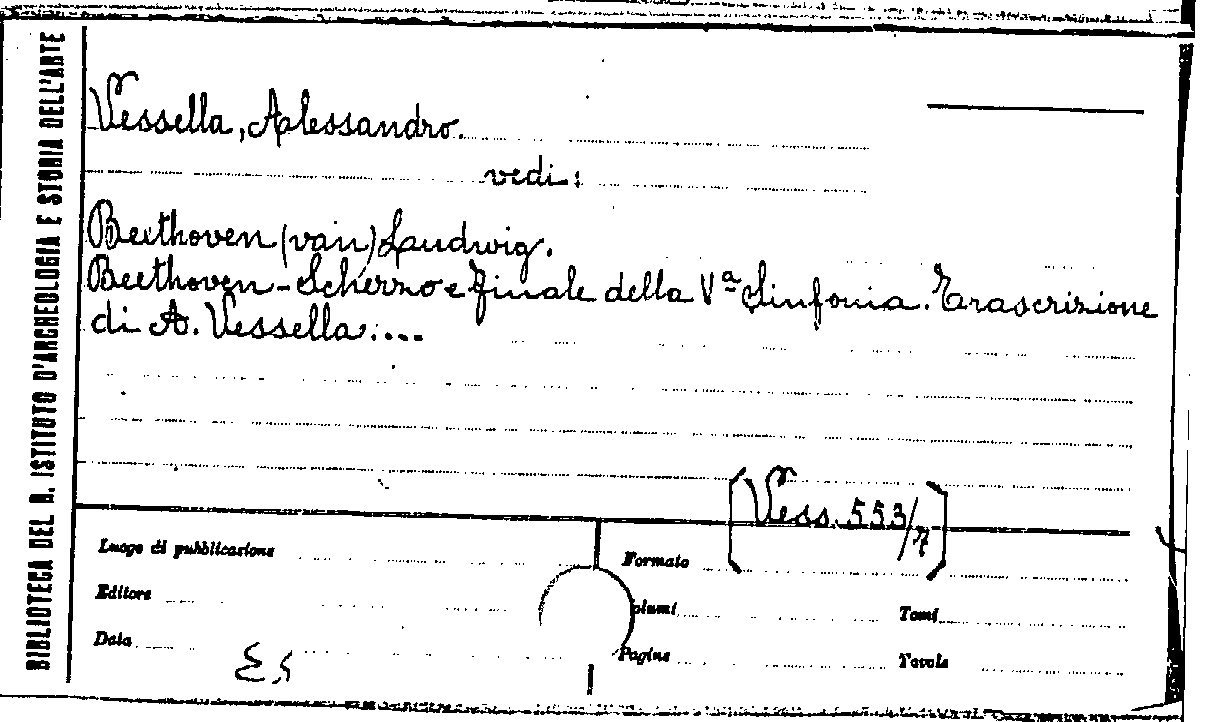 BIBLIOTECA DEL R. ISTITUTO D'ARCHEOLOGIA E STORIA DELL'ARTE
Vessella, Alessandro.
vedi:
Beethoven (van) Ludwig.
Beethoven - Scherzo e Finale della Vª Sinfonia. Trascrizione
di A. Vessella....
[Vess. 553/7]
Luogo di pubblicazione
Formato
Editore
Volumi
Tomi
Data
Pagine
Tavole